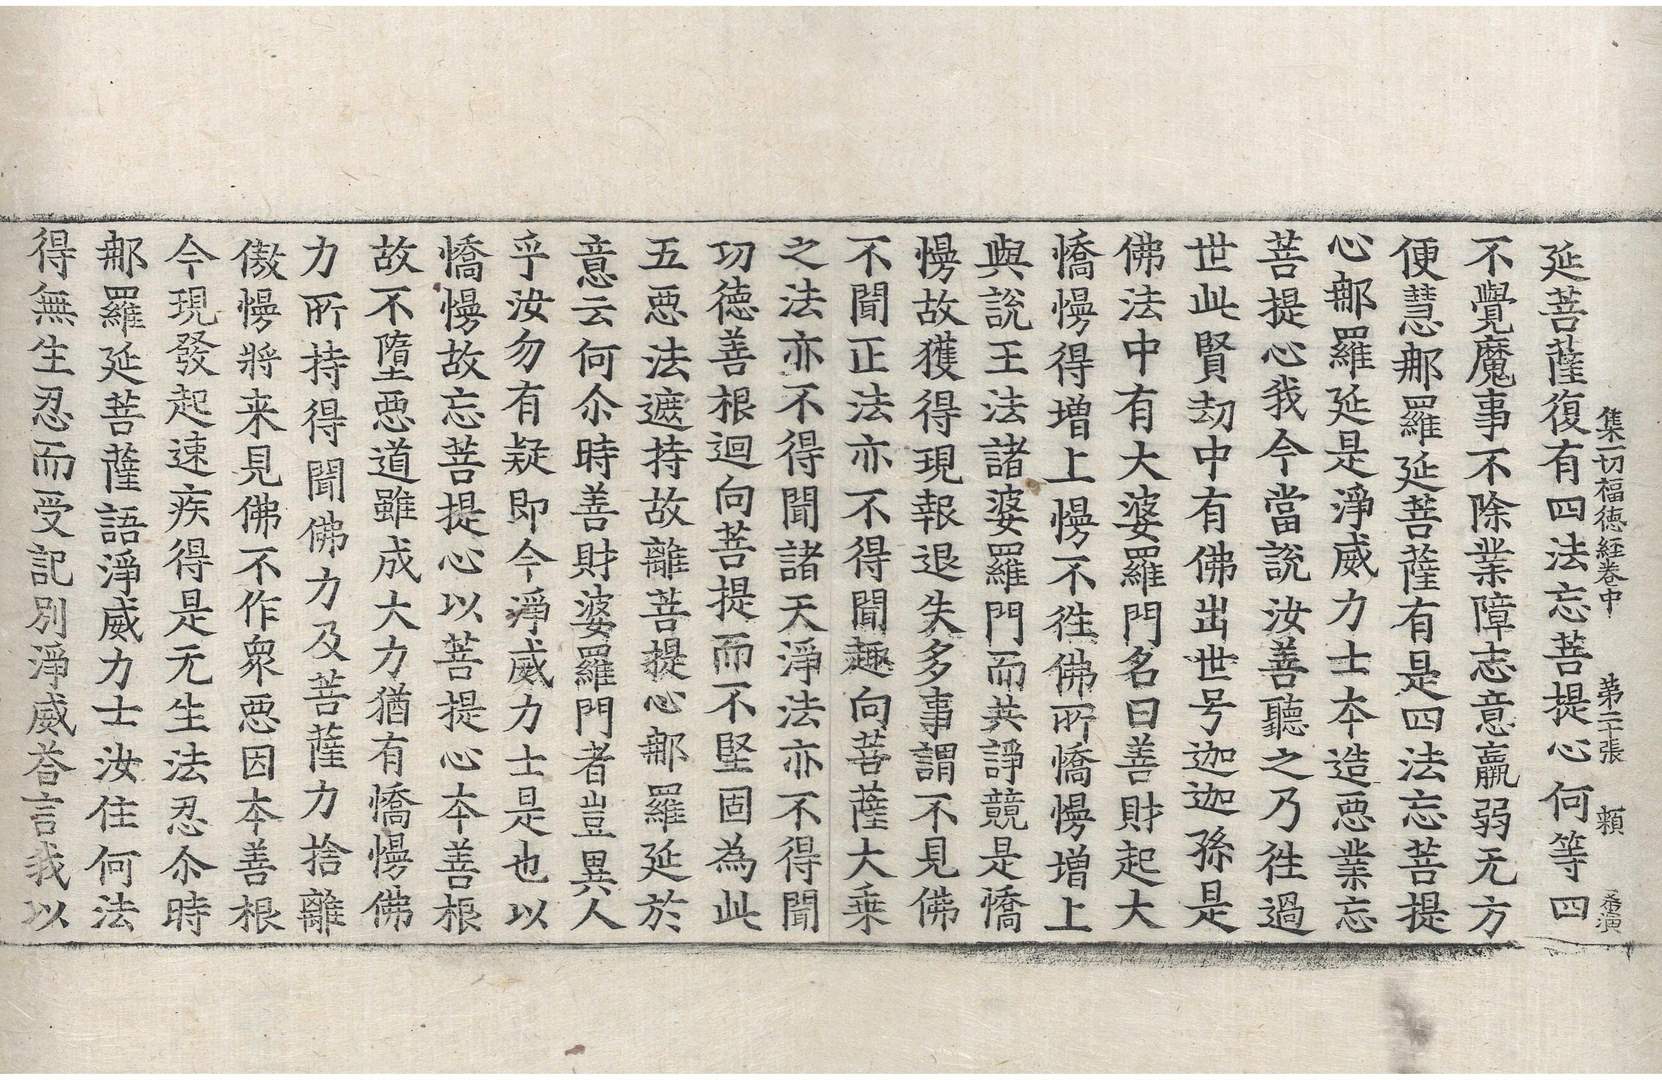 集一切福德経卷中　第二十張　賴　秦演
延菩薩復有四法忘菩提心何等四
不覺魔事不除業障志意羸弱无方
便慧那羅延菩薩有是四法忘菩提
心那羅延是淨威力士本造惡業忘
菩提心我今當說汝善聽之乃徃過
世此賢劫中有佛出世号迦迦孫是
佛法中有大婆羅門名曰善財起大
憍慢得增上慢不徃佛所憍慢增上
與說王法諸婆羅門而共諍競是憍
慢故獲得現報退失多事謂不見佛
不聞正法亦不得聞趣向菩薩大乗
之法亦不得聞諸天淨法亦不得聞
功德善根迴向菩提而不堅固為此
五惡法遮持故離菩提心那羅延於
意云何尒時善財婆羅門者豈異人
乎汝勿有疑即今淨威力士是也以
憍慢故忘菩提心以菩提心本善根
故不墮惡道雖成大力猶有憍慢佛
力所持得聞佛力及菩薩力捨離
傲慢將来見佛不作衆惡因本善根
今現發起速疾得是无生法忍尒時
那羅延菩薩語淨威力士汝住何法
得無生忍而受記別淨威荅言我以